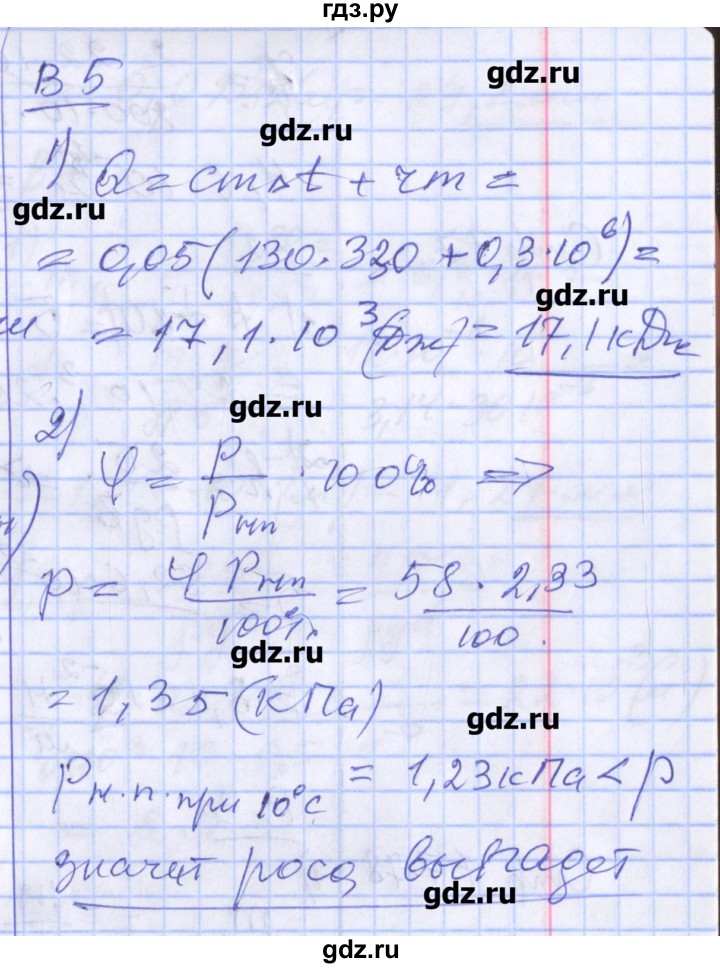 гдз.ру
В 5
gdz.ru
gdz.ru
1) Q = cmΔt + rm =
gdz.ru
= 0,05(130·320 + 0,3·10⁶) =
gdz.ru
= 17,1·10³(Дж) = 17,1 кДж
gdz.ru
2)
φ = P / Pнп · 100% =>
p = φ Pнп / 100% = 58 · 2,33 / 100
gdz.ru
= 1,35 (кПа)
gdz.ru
Pн.п. при 10°С = 1,23 кПа < p
значит роса выпадет
gdz.ru
gdz.ru